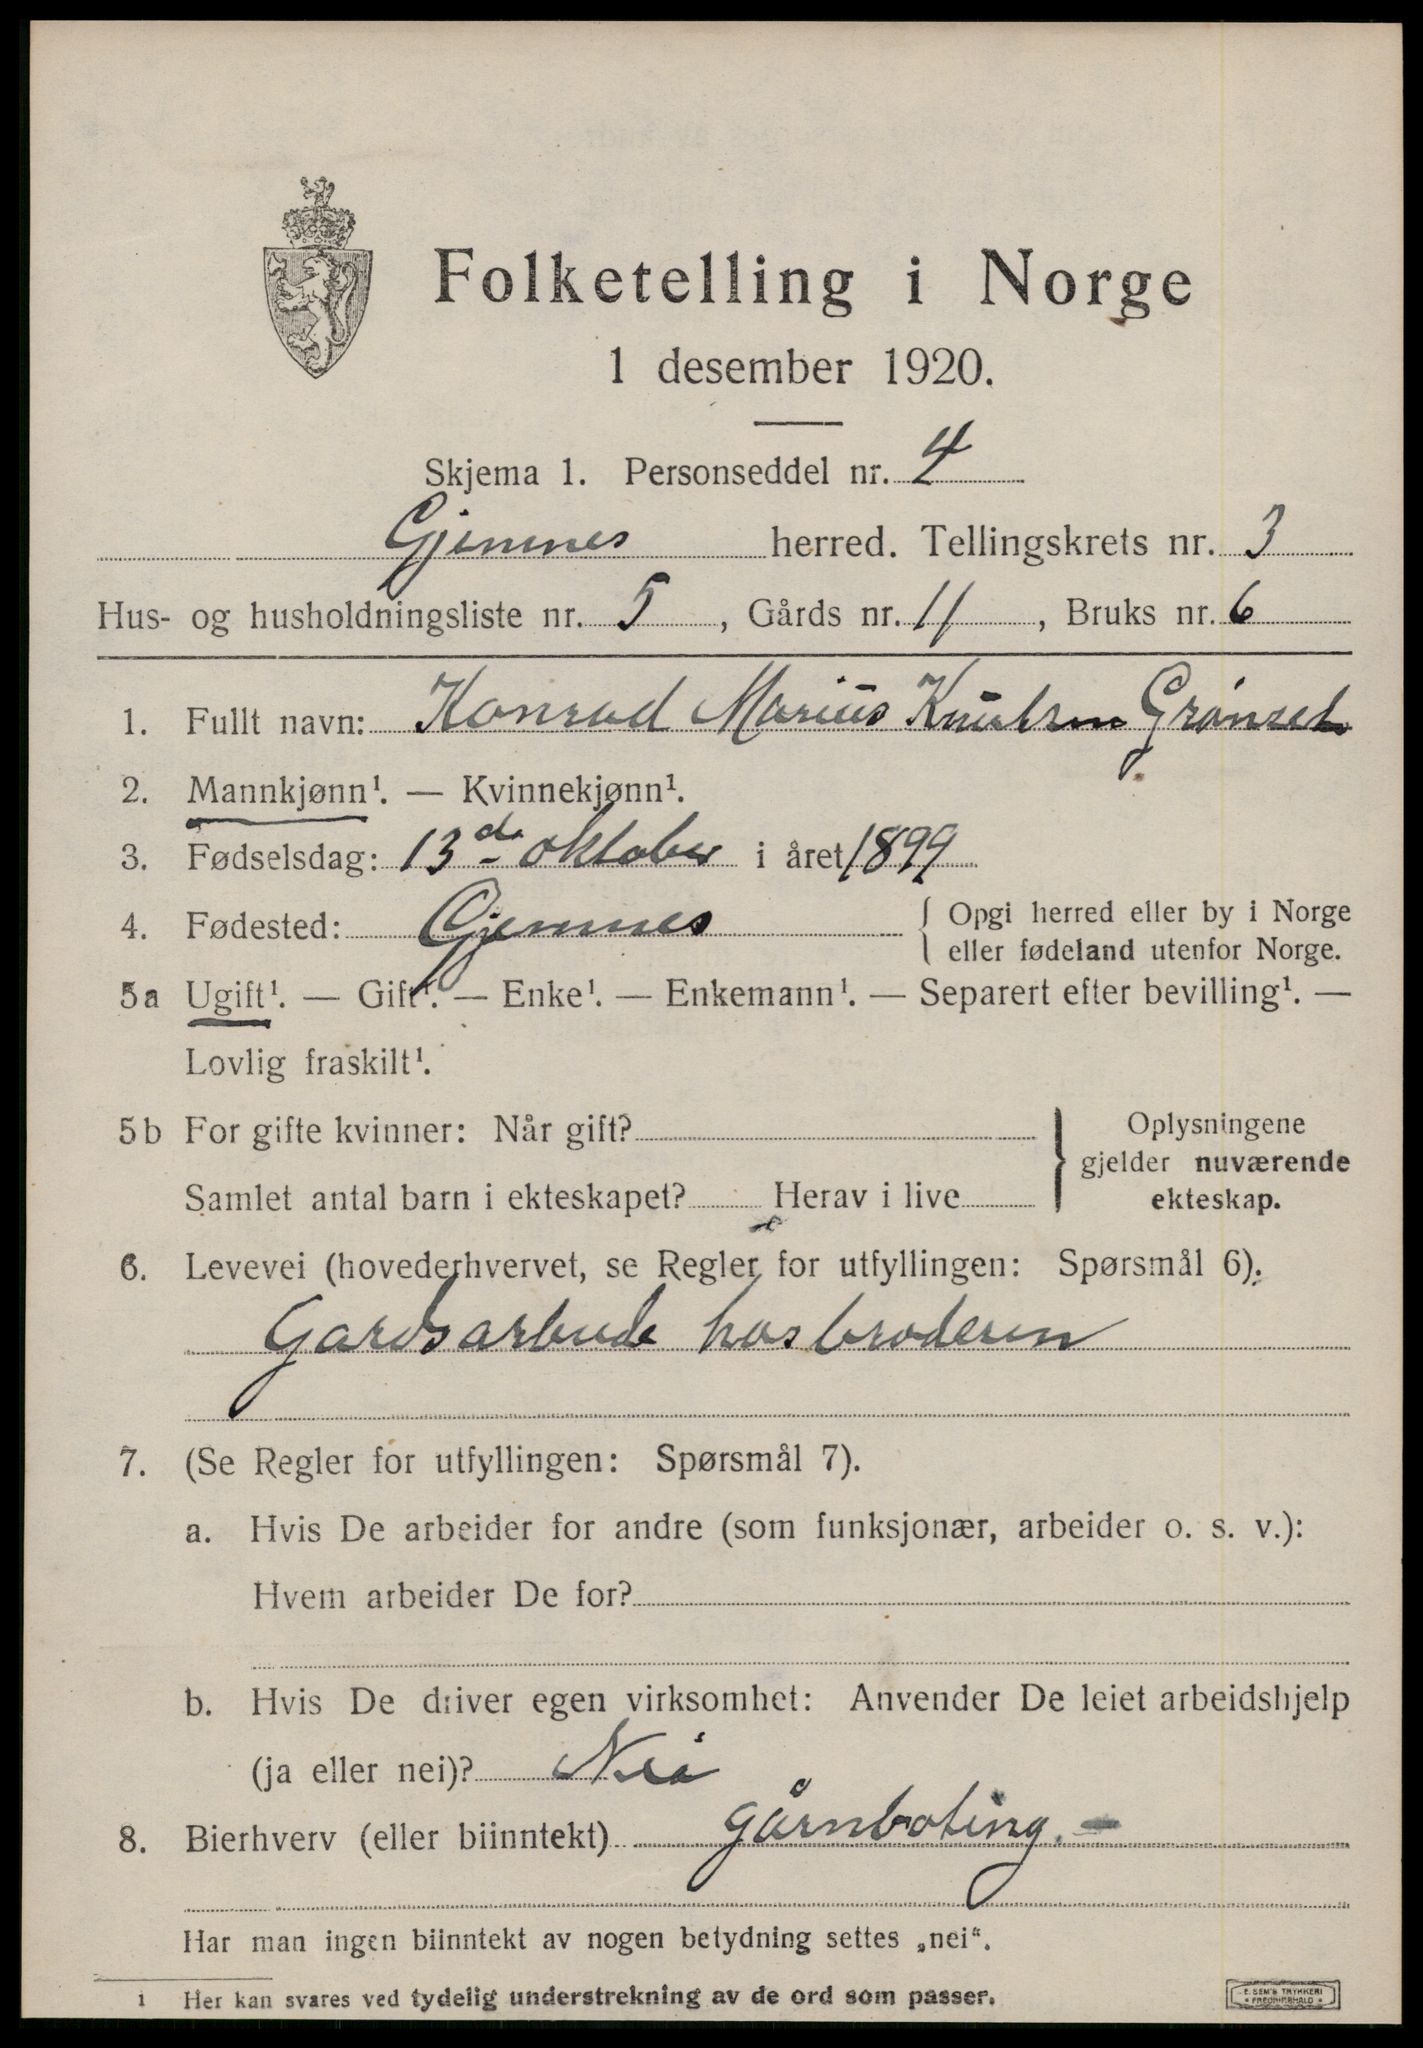 Folketelling i Norge
1 desember 1920.
Skjema 1. Personseddel nr. 4
Gjemnes herred. Tellingskrets nr. 3
Hus- og husholdningsliste nr. 5, Gårds nr. 11, Bruks nr. 6
1. Fullt navn: Konrad Marius Knutsen Grønset
2. Mannkjønn¹. — Kvinnekjønn¹.
3. Fødselsdag: 13de oktober i året 1899
4. Fødested: Gjemnes { Opgi herred eller by i Norge
eller fødeland utenfor Norge.
5a Ugift¹. — Gift¹. — Enke¹. — Enkemann¹. — Separert efter bevilling¹. —
Lovlig fraskilt¹.
5b For gifte kvinner: Når gift?
Samlet antal barn i ekteskapet? Herav i live
} Oplysningene
gjelder nuværende
ekteskap.
6. Levevei (hovederhvervet, se Regler for utfyllingen: Spørsmål 6).
Gardsarbeide hos broderen
7. (Se Regler for utfyllingen: Spørsmål 7).
a. Hvis De arbeider for andre (som funksjonær, arbeider o. s. v.):
Hvem arbeider De for?
b. Hvis De driver egen virksomhet: Anvender De leiet arbeidshjelp
(ja eller nei)? Nei
8. Bierhverv (eller biinntekt) gårnbøting. -
Har man ingen biinntekt av nogen betydning settes „nei“.
1 Her kan svares ved tydelig understrekning av de ord som passer.
E. SEM'S TRYKKERI
FREDRIKSHALD